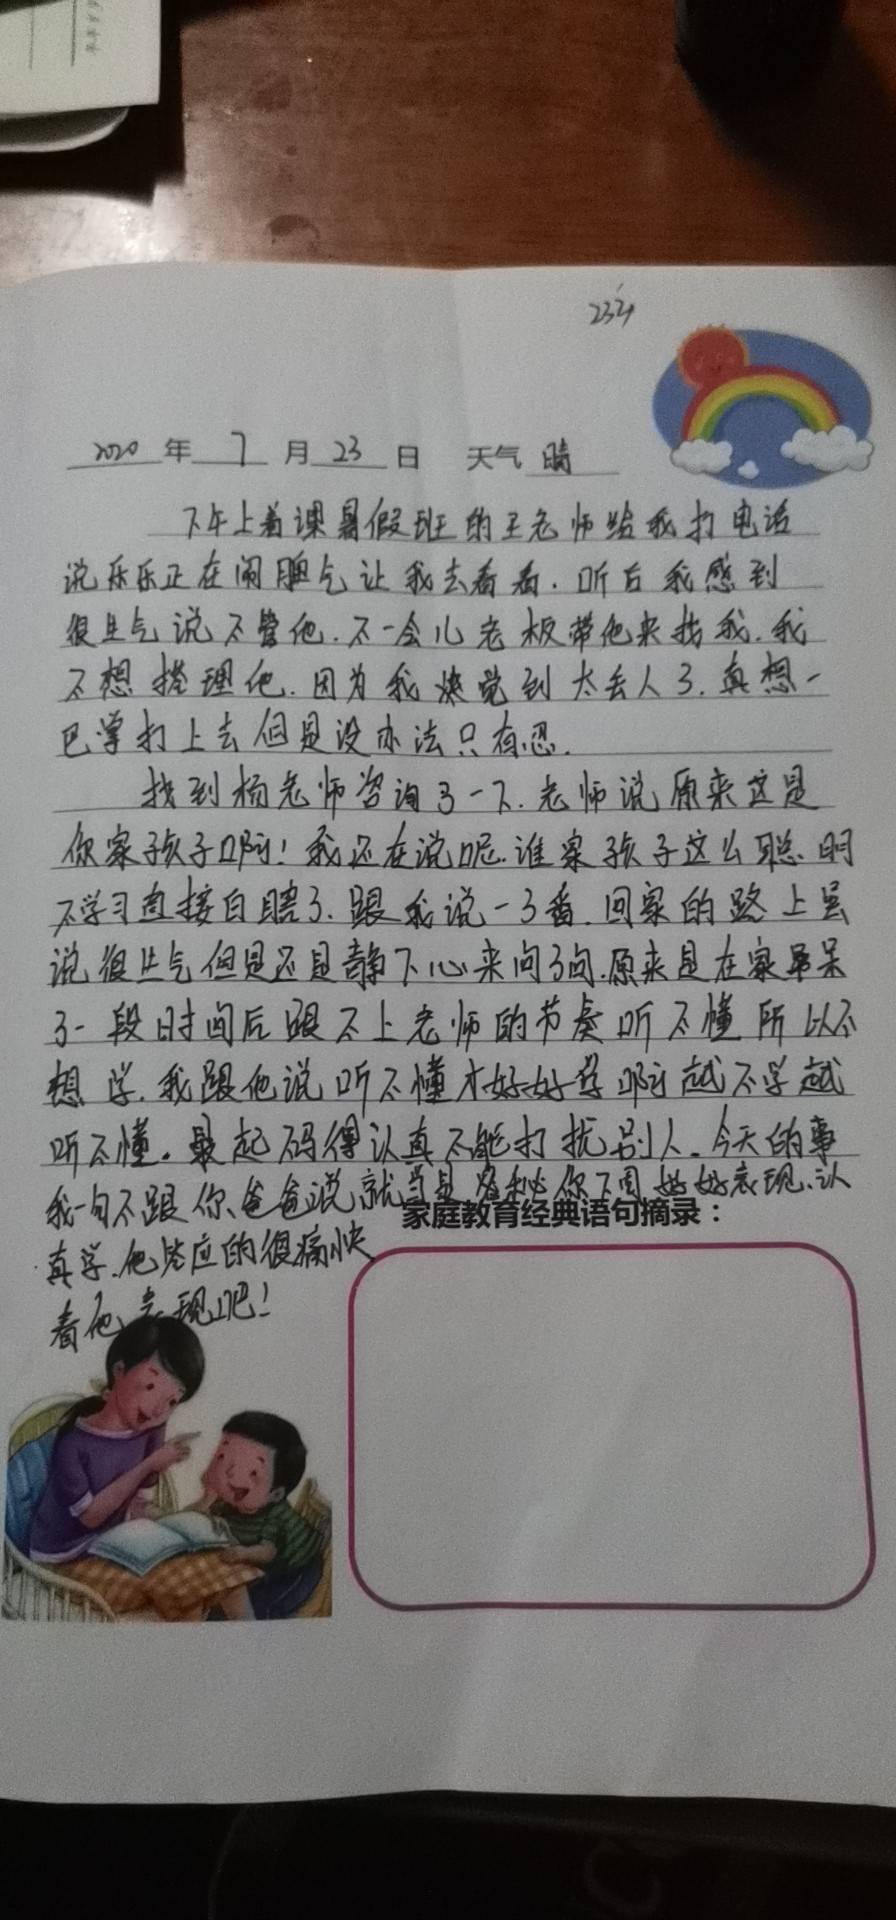 2020 年 7 月 23 日 天气 晴
下午上着课暑假班的王老师给我打电话
说乐乐正在闹脾气让我去看看.听后我感到
很生气说不管他.不一会儿老板带他来找我.我
不想搭理他.因为我感觉到太丢人了.真想一
巴掌打上去但是没办法只有忍.
找到杨老师咨询了一下.老师说原来这是
你家孩子啊!我还在说呢.谁家孩子这么聪明
不学习直接白瞎了.跟我说一了番.回家的路上虽
说很生气但是还是静下心来问了问.原来是在家
了一段时间后跟不上老师的节奏听不懂所以不
想学.我跟他说听不懂才好好学啊越不学越
听不懂.最起码得认真不能打扰别人.今天的事
我一句不跟你爸爸说就当是 你下周好好表现.认
家庭教育经典语句摘录:
真学.他答应的很痛快
看他表现吧!